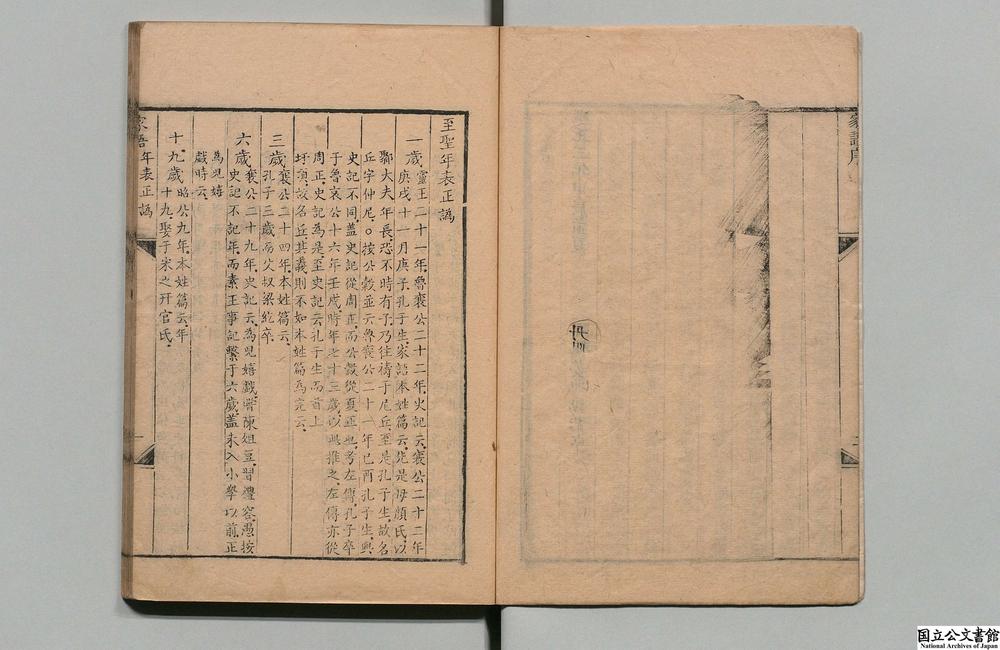 家語序
至聖年表正譌
一歲靈王二十一年魯襄公二十二年史記云襄公二十二年
庚戌十一月庚子孔子生家語本姓篇云先是母顏氏以
鄹大夫年長恐不時有子乃往禱于尼丘至是孔子生故名
丘字仲尼○按公穀並云魯襄公二十一年已酉孔子生與
史記不同蓋史記從周正而公穀從夏正也考左傳孔子卒
于魯哀公十六年壬戌時年七十三歲以興推之左傳亦從
周正史記為是至史記云孔子生而首上
圩頂故名丘其義則不如本姓篇為完云
三歲襄公二十四年本姓篇云
孔子三歲而父叔梁紇卒
六歲襄公二十九年史記云為兒嬉戲嘗陳俎豆習禮容愚按
史記不記年而素王事記繫于六歲蓋未入小學以前正
為兒嬉
戲時云
十九歲昭公九年本姓篇云年
十九娶于宋之幵官氏
家語年表正譌
一
国立公文書館
National Archives of Japan